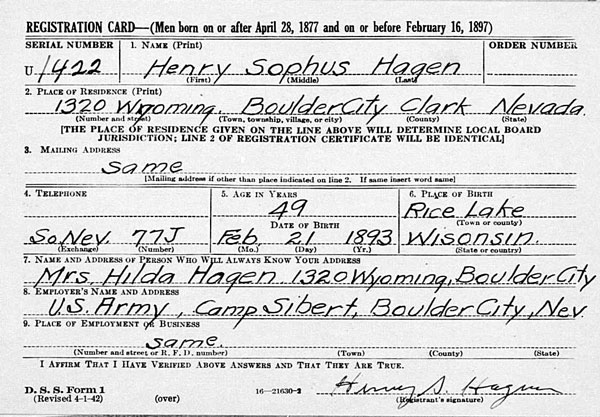 REGISTRATION CARD—(Men born on or after April 28, 1877 and on or before February 16, 1897)
SERIAL NUMBER 1. NAME (Print) ORDER NUMBER
U 1422 Henry Sophus Hagen
(First) (Middle) (Last)
2. PLACE OF RESIDENCE (Print)
1320 Wyoming. Boulder City Clark Nevada
(Number and street) (Town, township, village, or city) (County) (State)
[THE PLACE OF RESIDENCE GIVEN ON THE LINE ABOVE WILL DETERMINE LOCAL BOARD
JURISDICTION; LINE 2 OF REGISTRATION CERTIFICATE WILL BE IDENTICAL]
3. MAILING ADDRESS
same
[Mailing address if other than place indicated on line 2. If same insert word same]
4. TELEPHONE 5. AGE IN YEARS 6. PLACE OF BIRTH
49 Rice Lake
DATE OF BIRTH (Town or county)
So. Nev. 77J Feb 21 1893 Wisonsin.
(Exchange) (Number) (Mo.) (Day) (Yr.) (State or country)
7. NAME AND ADDRESS OF PERSON WHO WILL ALWAYS KNOW YOUR ADDRESS
Mrs. Hilda Hagen 1320 Wyoming, Boulder City
8. EMPLOYER'S NAME AND ADDRESS
U.S. Army, Camp Sibert, Boulder City, Nev.
9. PLACE OF EMPLOYMENT OR BUSINESS
same.
(Number and street or R. F. D. number) (Town) (County) (State)
I AFFIRM THAT I HAVE VERIFIED ABOVE ANSWERS AND THAT THEY ARE TRUE.
D. S. S. Form 1
(Revised 4-1-42) (over) 16—21630-2 Henry S. Hagen
(Registrant's signature)